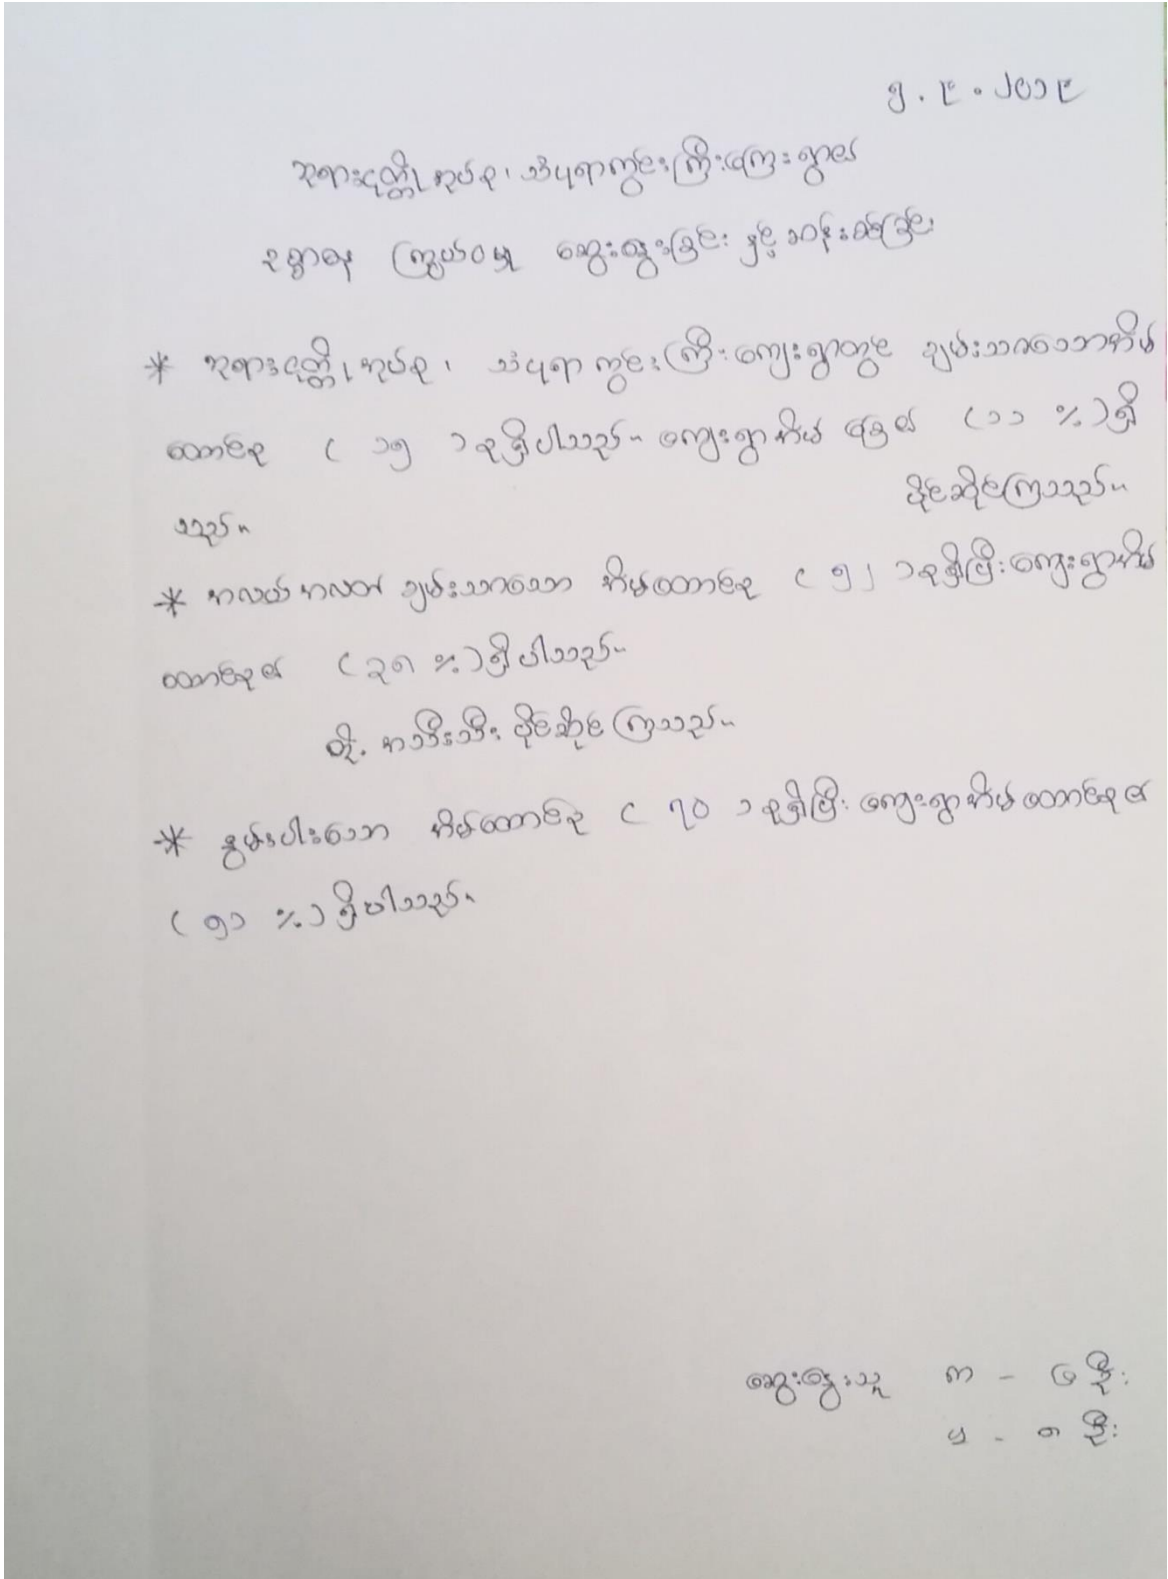 ၅.၉.၂၀၁၉
ဘုရားငုတ္တိုအုပ်စု၊ သံပုရာကွင်းကြီးကျေးရွာ၏
ဥစ္စာဓန ကြွယ်ဝမှု ဆွေးနွေးခြင်း နှင့် ဆန်းစစ်ခြင်း
* ဘုရားငုတ္တိုအုပ်စု၊ သံပုရာကွင်းကြီးကျေးရွာတွင် ချမ်းသာသောအိမ်
ထောင်စု ( ၁၅ ) စုရှိပါသည်။ ကျေးရွာအိမ်ခြေ၏ (၁၁ %) ရှိ
သည်။ ပိုင်ဆိုင်ကြသည်။
* အလယ်အလတ် ချမ်းသာသော အိမ်ထောင်စု ( ၅၂ ) စုရှိပြီး ကျေးရွာအိမ်
ထောင်စု၏ (၃၈ %) ရှိပါသည်။
တို့ အသီးသီး ပိုင်ဆိုင်ကြသည်။
* နွမ်းပါးသော အိမ်ထောင်စု ( ၇၀ ) စုရှိပြီး ကျေးရွာအိမ်ထောင်စု၏
( ၅၁ %) ရှိပါသည်။
ဆွေးနွေးသူ ကျ - ၆ ဦး
မ - ၈ ဦး